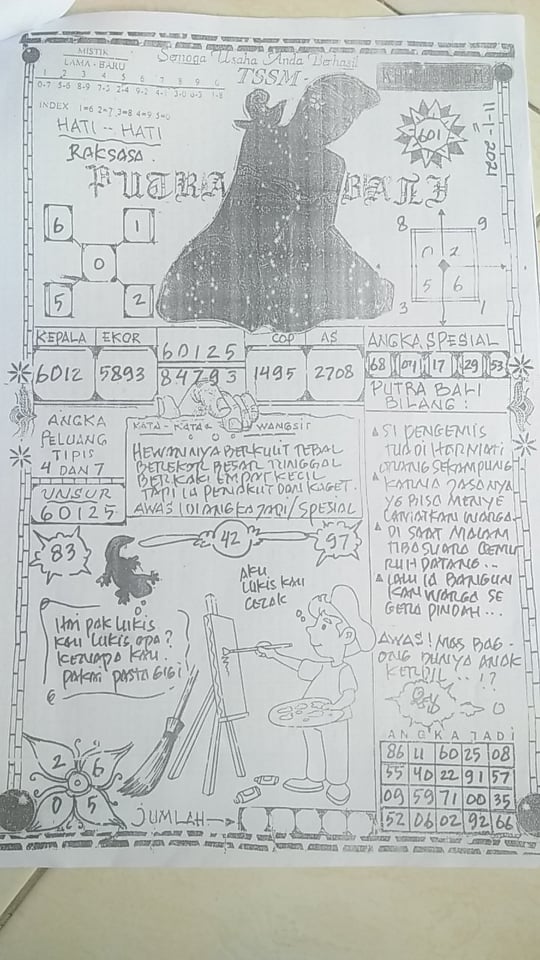 MISTIK
LAMA - BARU
1 2 3 4 5 6 7 8 9 0
0-7 5-6 8-9 7-3 2-4 9-2 4-1 3-0 6-5 1-8
INDEX 1=6 2=7 3=8 4=9 5=0
Semoga Usaha Anda Berhasil
TSSM-
HATI - HATI
RAKSASA.
601
11-1-2021
PUTRA BALI
6 1
0
5 2
8 9
0 2
5 6
3 1
KEPALA EKOR
6012 5893
60125
84793
COP AS
1495 2708
ANGKA SPESIAL
68 04 17 29 53
PUTRA BALI
BILANG :
ANGKA
PELUANG
TIPIS
4 DAN 7
UNSUR
60125
KATA - KATA WANGSIT
HEWANNYA BERKULIT TEBAL
BEREKOR BESAR TUNGGAL
BERKAKI EMPAT KECIL
TAPI IA PENAKUT DAN KAGET.
AWAS IDI ANGKA JADI/SPESIAL
SI PENGEMIS
TUA DI HORMATI
ORANG SEKAMPUNG
KARNA JASANYA
YG BISA MENYE
LAMATKAN WARGA
DI SAAT MALAM
TIBA SUARA GEMU
RUH DATANG...
LALU IA BANGUN
KAN WARGA SE
GERA PINDAH...
AWAS! MAS BAG-
ONG PUNYA ANAK
KERDIL...!?
83
42
97
AKU
LUKIS KAU
CECAK
HAI PAK LUKIS
KAU LUKIS APA?
KENAPA KAU
PAKAI PASTA GIGI
2 6
0 5
JUMLAH
ANGKA JADI
86 11 60 25 08
55 40 22 91 57
09 59 71 00 35
52 06 02 92 66